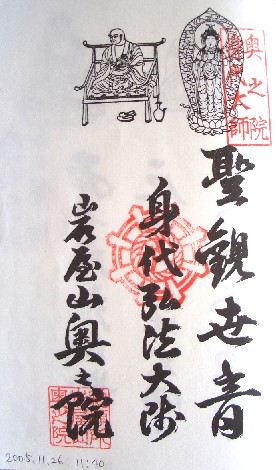 奥之院
身代大師
聖観世音
身代弘法大師
岩屋山奥之院
2005.11.26 11:40